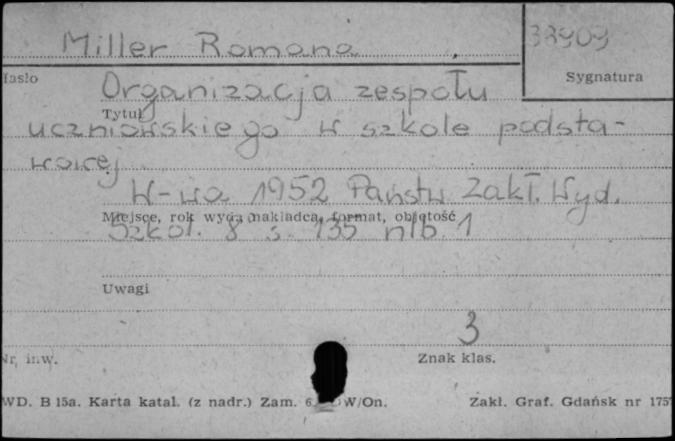 Miller Romana
38909
Hasło
Sygnatura
Organizacja zespołu
Tytuł
uczniowskiego w szkole podsta-
wowej
W-wa 1952 Państw. Zakł. Wyd.
Miejsce, rok wyd., nakładca, format, objętość
Szkol. 8 s. 135 nlb. 1
Uwagi
3
Nr. inw.
Znak klas.
WD. B 15a. Karta katal. (z nadr.) Zam. 6 W/On.
Zakł. Graf. Gdańsk nr 175